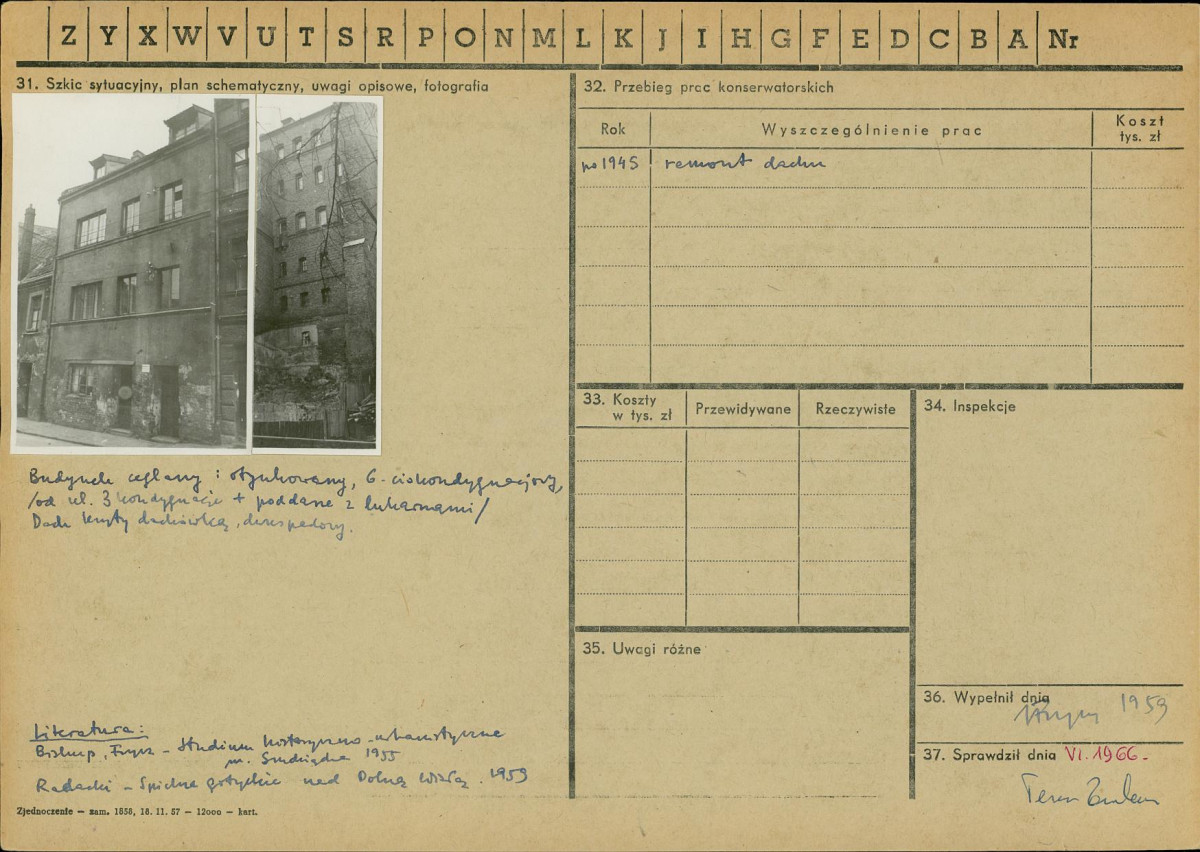 Z Y X W V U T S R P O N M L K J I H G F E D C B A Nr
31. Szkic sytuacyjny, plan schematyczny, uwagi opisowe, fotografia
Budynek ceglany i otynkowany, 6-ciokondygnacjowy,
/od ul. 3 kondygnacje + poddasze z lukarnami/
Dach kryty dachówką, dwuspadowy.
Literatura:
Biskup, Frycz - Studium historyczno-urbanistyczne
m. Grudziądza 1955
Radacki - Spichrze gotyckie nad Dolną Wisłą. 1959
Zjednoczenie — zam. 1858, 18. 11. 57 — 12000 — kart.
32. Przebieg prac konserwatorskich
Rok Wyszczególnienie prac Koszt tys. zł
po 1945 remont dachu
33. Koszty w tys. zł Przewidywane Rzeczywiste
34. Inspekcje
35. Uwagi różne
36. Wypełnił dnia
1959
37. Sprawdził dnia VI. 1966.